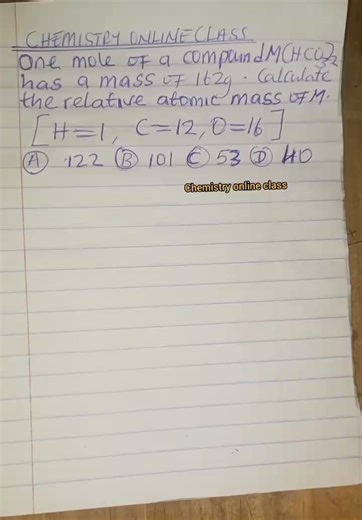 CHEMISTRY ONLINE CLASS
One mole of a compound M(HCO3)2
has a mass of 162g. Calculate
the relative atomic mass of M.
[H=1, C=12, O=16]
(A) 122 (B) 101 (C) 53 (D) 40
Chemistry online class